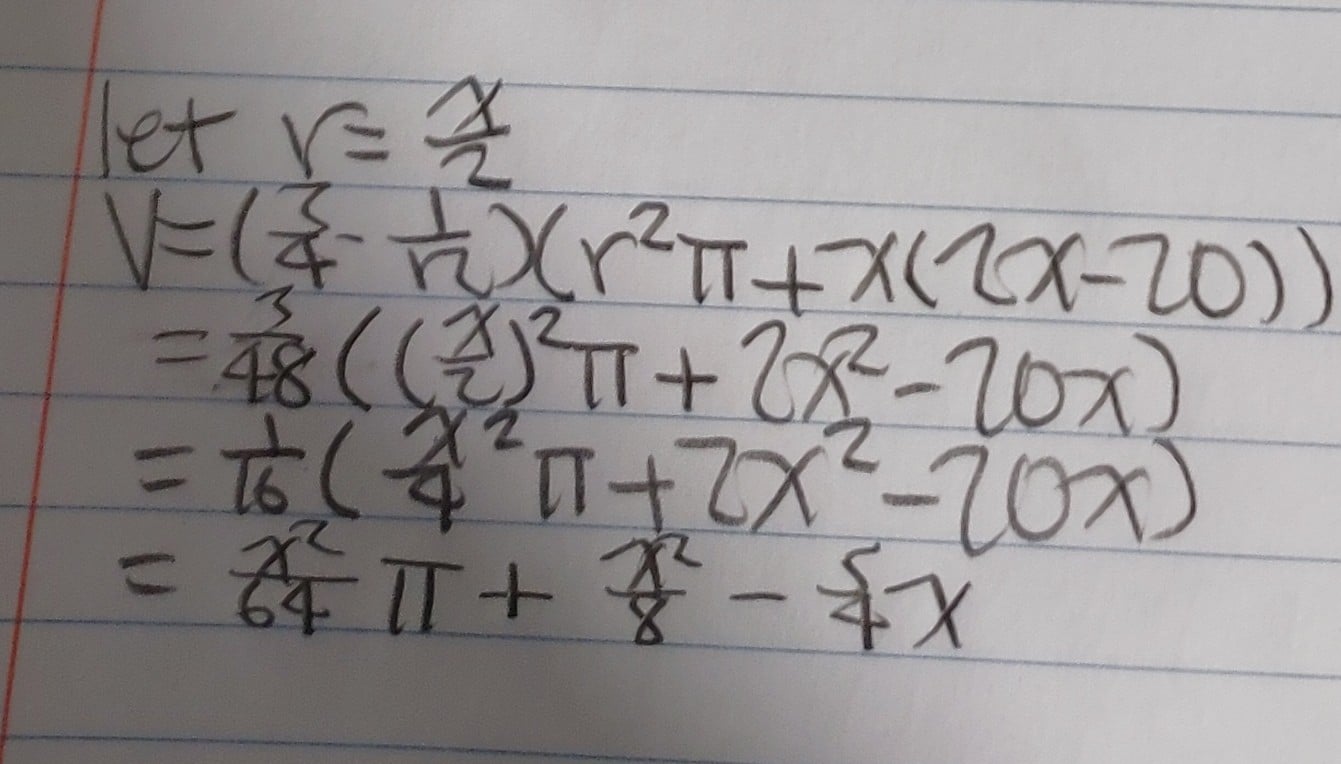 let r = x/2
V = (3/4 - 1/12)(r²π + x(2x - 20))
= 3/48((x/2)²π + 2x² - 20x)
= 1/16(x²/4 π + 2x² - 20x)
= x²/64 π + x²/8 - 5/4 x